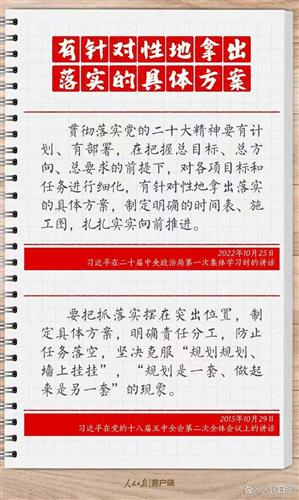 有针对性地拿出
落实的具体方案
贯彻落实党的二十大精神要有计
划、有部署，在把握总目标、总方
向、总要求的前提下，对各项目标和
任务进行细化，有针对性地拿出落实
的具体方案，制定明确的时间表、施
工图，扎扎实实向前推进。
2022年10月25日
习近平在二十届中央政治局第一次集体学习时的讲话
要把抓落实摆在突出位置，制
定具体方案，明确责任分工，防止
任务落空，坚决克服“规划规划、
墙上挂挂”，“规划是一套、做起
来是另一套”的现象。
2015年10月29日
习近平在党的十八届五中全会第二次全体会议上的讲话
人民日报 客户端